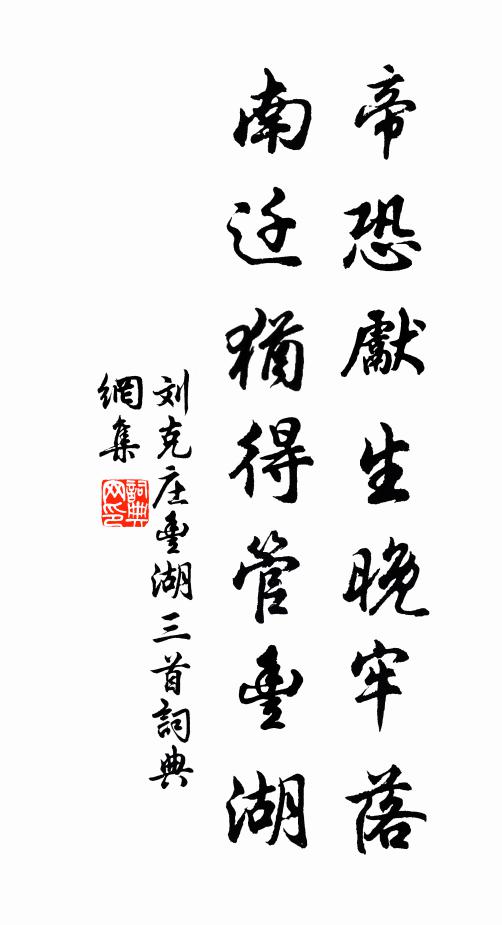 帝恐獻生晚牢落
南迁猶得管豊湖
刘克庄豊湖三首詞典
網集
詞典
网印